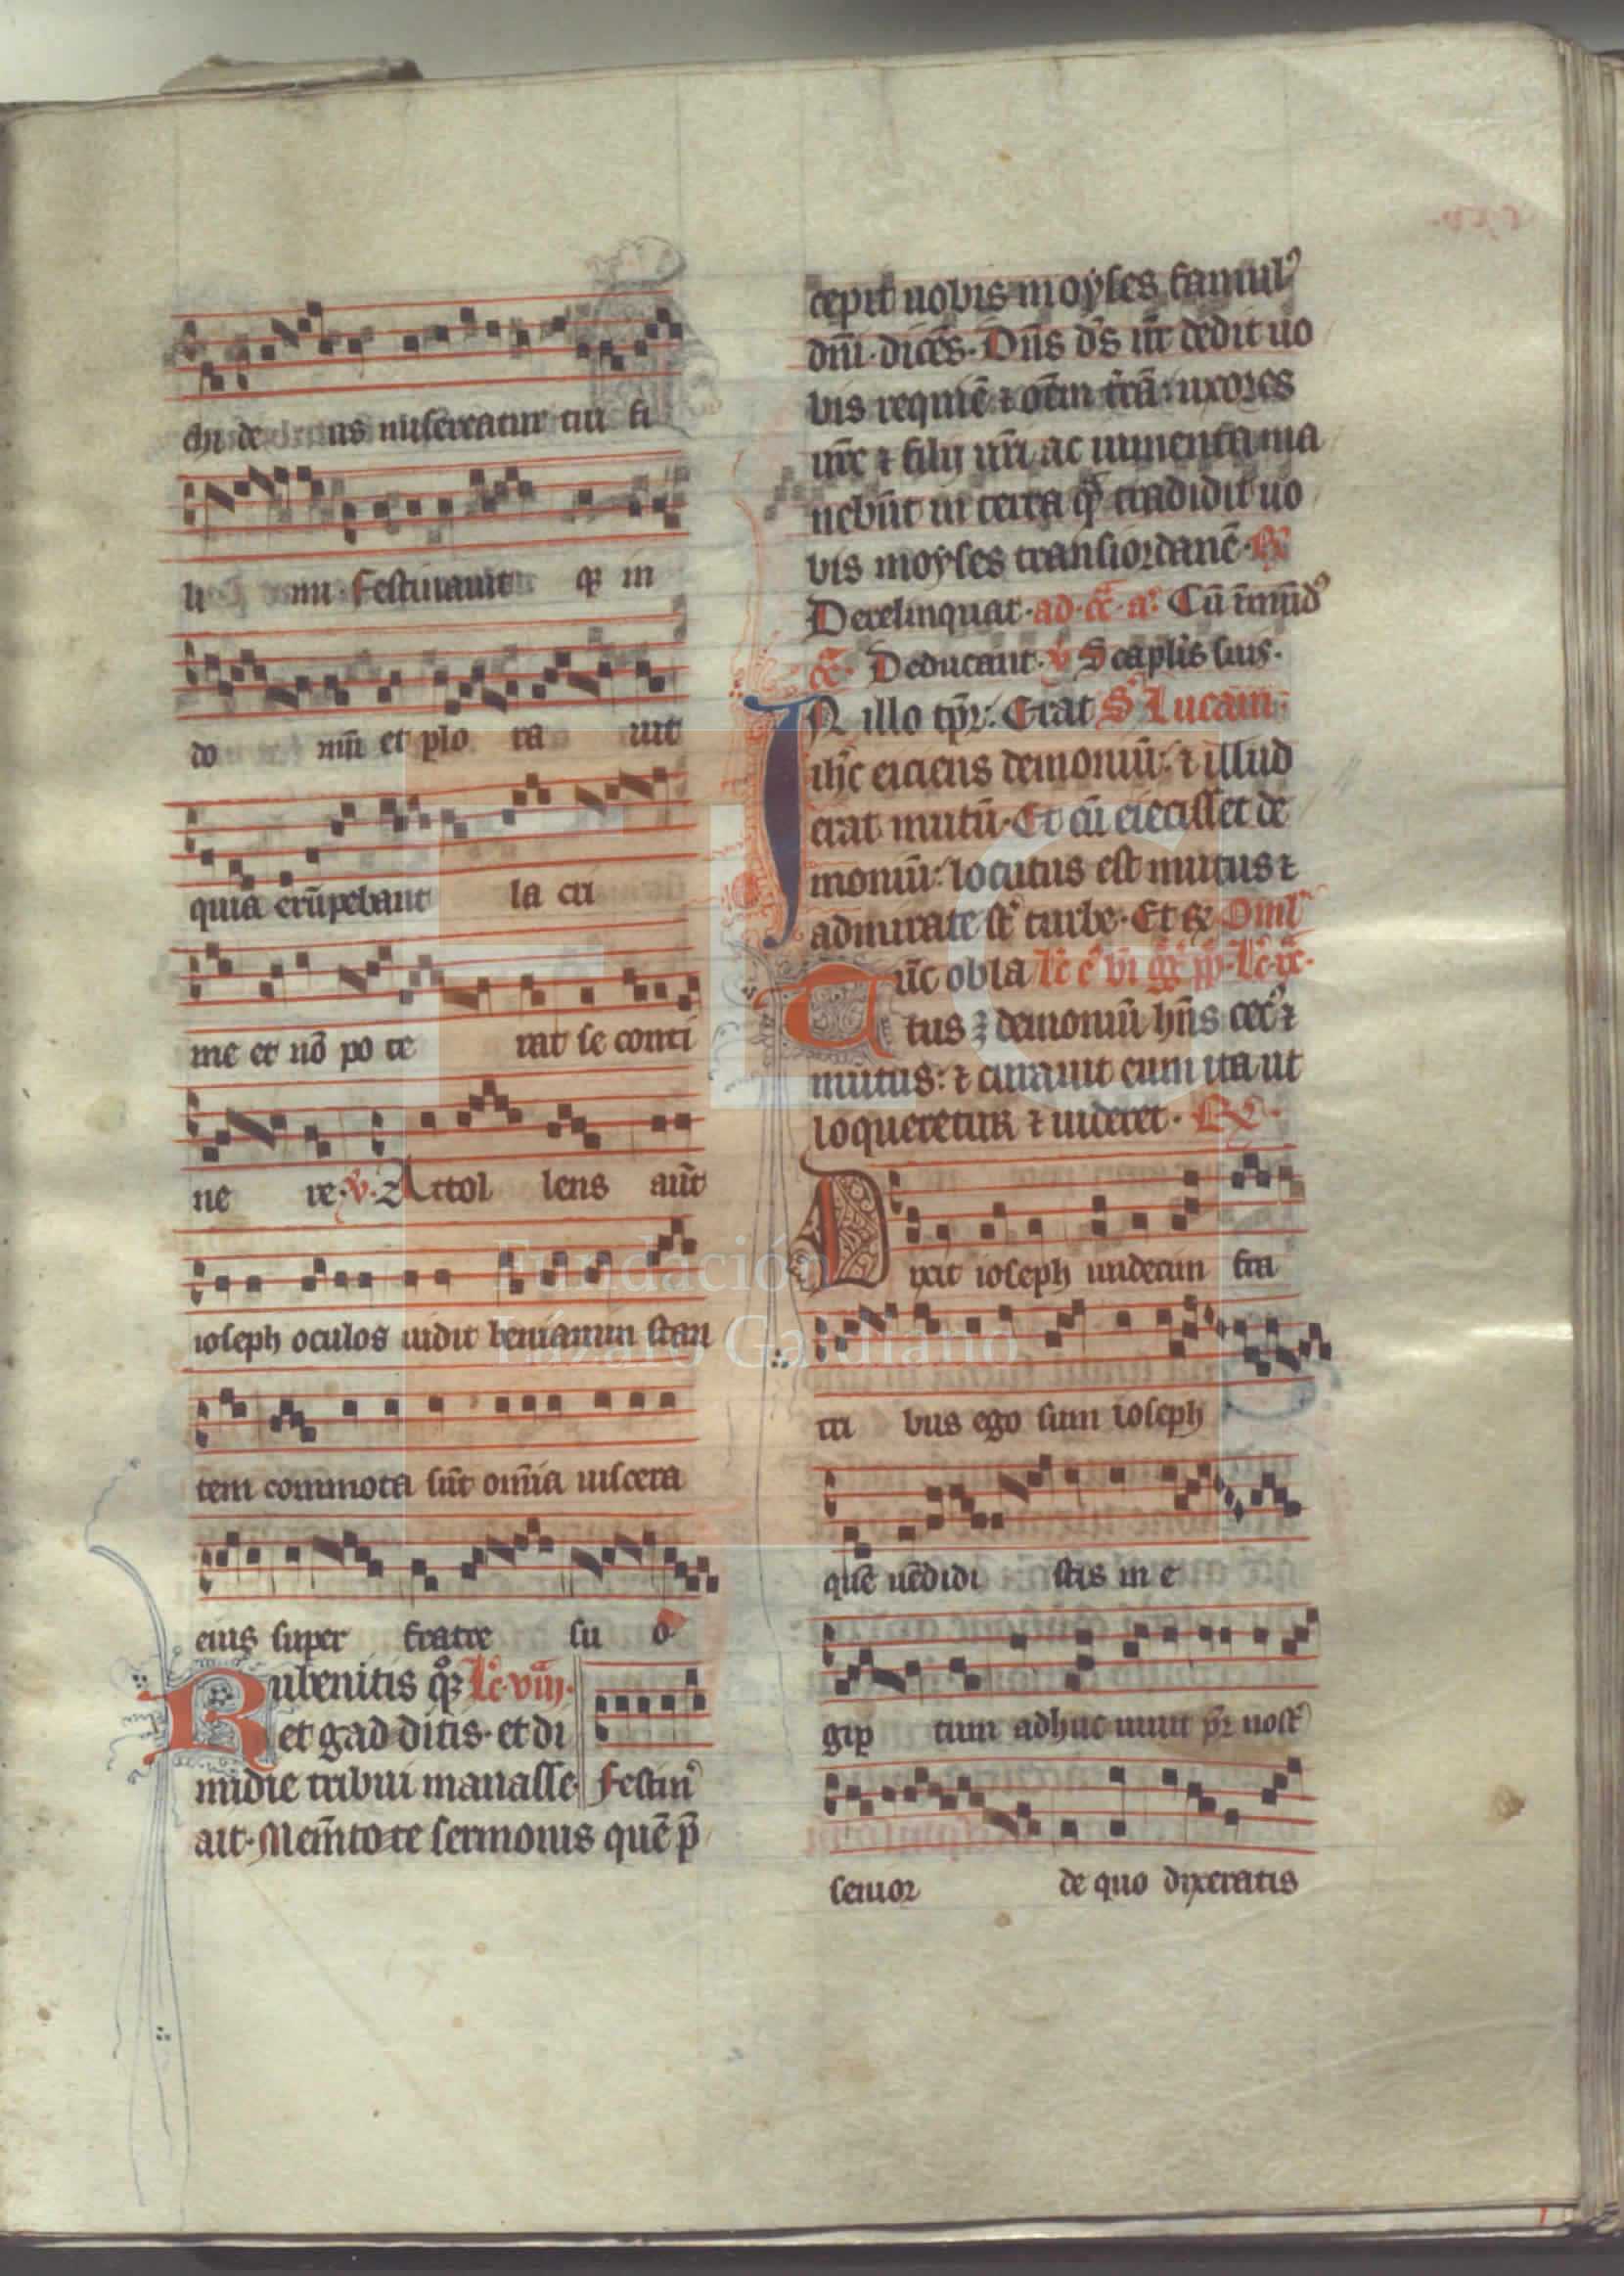 chi deus misereatur tui fi
li mi. Festinauit q; in
do mũ et plo ra uit
quia erũpebant la cri
me et nõ po te rat se conti
ne re. v. Attol lens aũt
ioseph oculos uidit beniamin stan
tem commota sũt om̃ia uiscera
eius super fratre su o
Rubenitis q̊; lc̃. viii.
et gad ditis. et di
midie tribui manasse Festin᷒
ait. Mem̃tote sermonis quẽ p̃
cepit uobis moyses famul᷒
dñi. dicẽs. Dñs ds̃ ur̃ dedit uo
bis requiẽ ⁊ om̃em tr̃ã: uxores
ur̃e ⁊ filij ur̃i ac iumenta ma
nebũt in terra q̃ tradidit uo
bis moyses transiordanẽ. R̃
Derelinquat. ad. cõ. a᷒. Cũ ĩmũd᷒
õr. Deducant. v Scaplis suis.
IN illo tp̃r: Erat S. Lucam.
ih̃c eiciens demoniũ: ⁊ illud
erat mutũ. Et cũ eiecisset de
moniũ: locutus est mutus ⁊
admirate st̃ turbe. Et R̃ Oml᷒
tus ; demoniũ hñs cec᷒ ⁊
mutus: ⁊ curauit eum ita ut
loqueretur ⁊ uideret. R̃
Dixit ioseph undecim fra
tri bus ego sum ioseph
quẽ uẽdidi stis in e
gip tum adhuc uiuit pr̃ nost᷒
senior de quo dixeratis
Fundación
Lázaro Galdiano